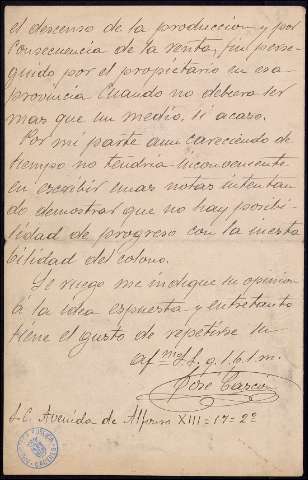 el descenso de la produccion y por
consecuencia de la renta, fin perse-
guido por el propietario en esa
provincia cuando no debera ser
mas que un medio, si acaso.
Por mi parte aun careciendo de
tiempo no tendria inconveniente
en escribir unas notas intentan
do demostrar que no hay posibi-
lidad de progreso con la inesta
bilidad del colono.
Le ruego me indique su opinion
á la idea expuesta y entretanto
tiene el gusto de repetirse su
af.mo S.S. q. l. b. l. m.
José García
S.C. Avenida de Alfonso XIII=17=2º